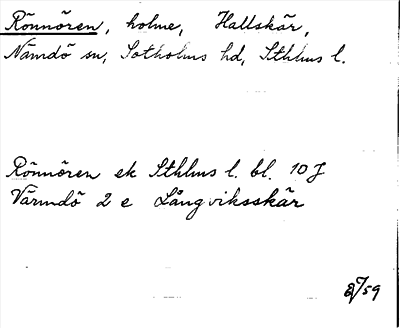 Rönnören, holme, Hallskär,
Nämdö sn, Sotholms hd, Sthlms l.
Rönnören ek Sthlms l. bl. 10 J
Värmdö 2 e Långviksskär